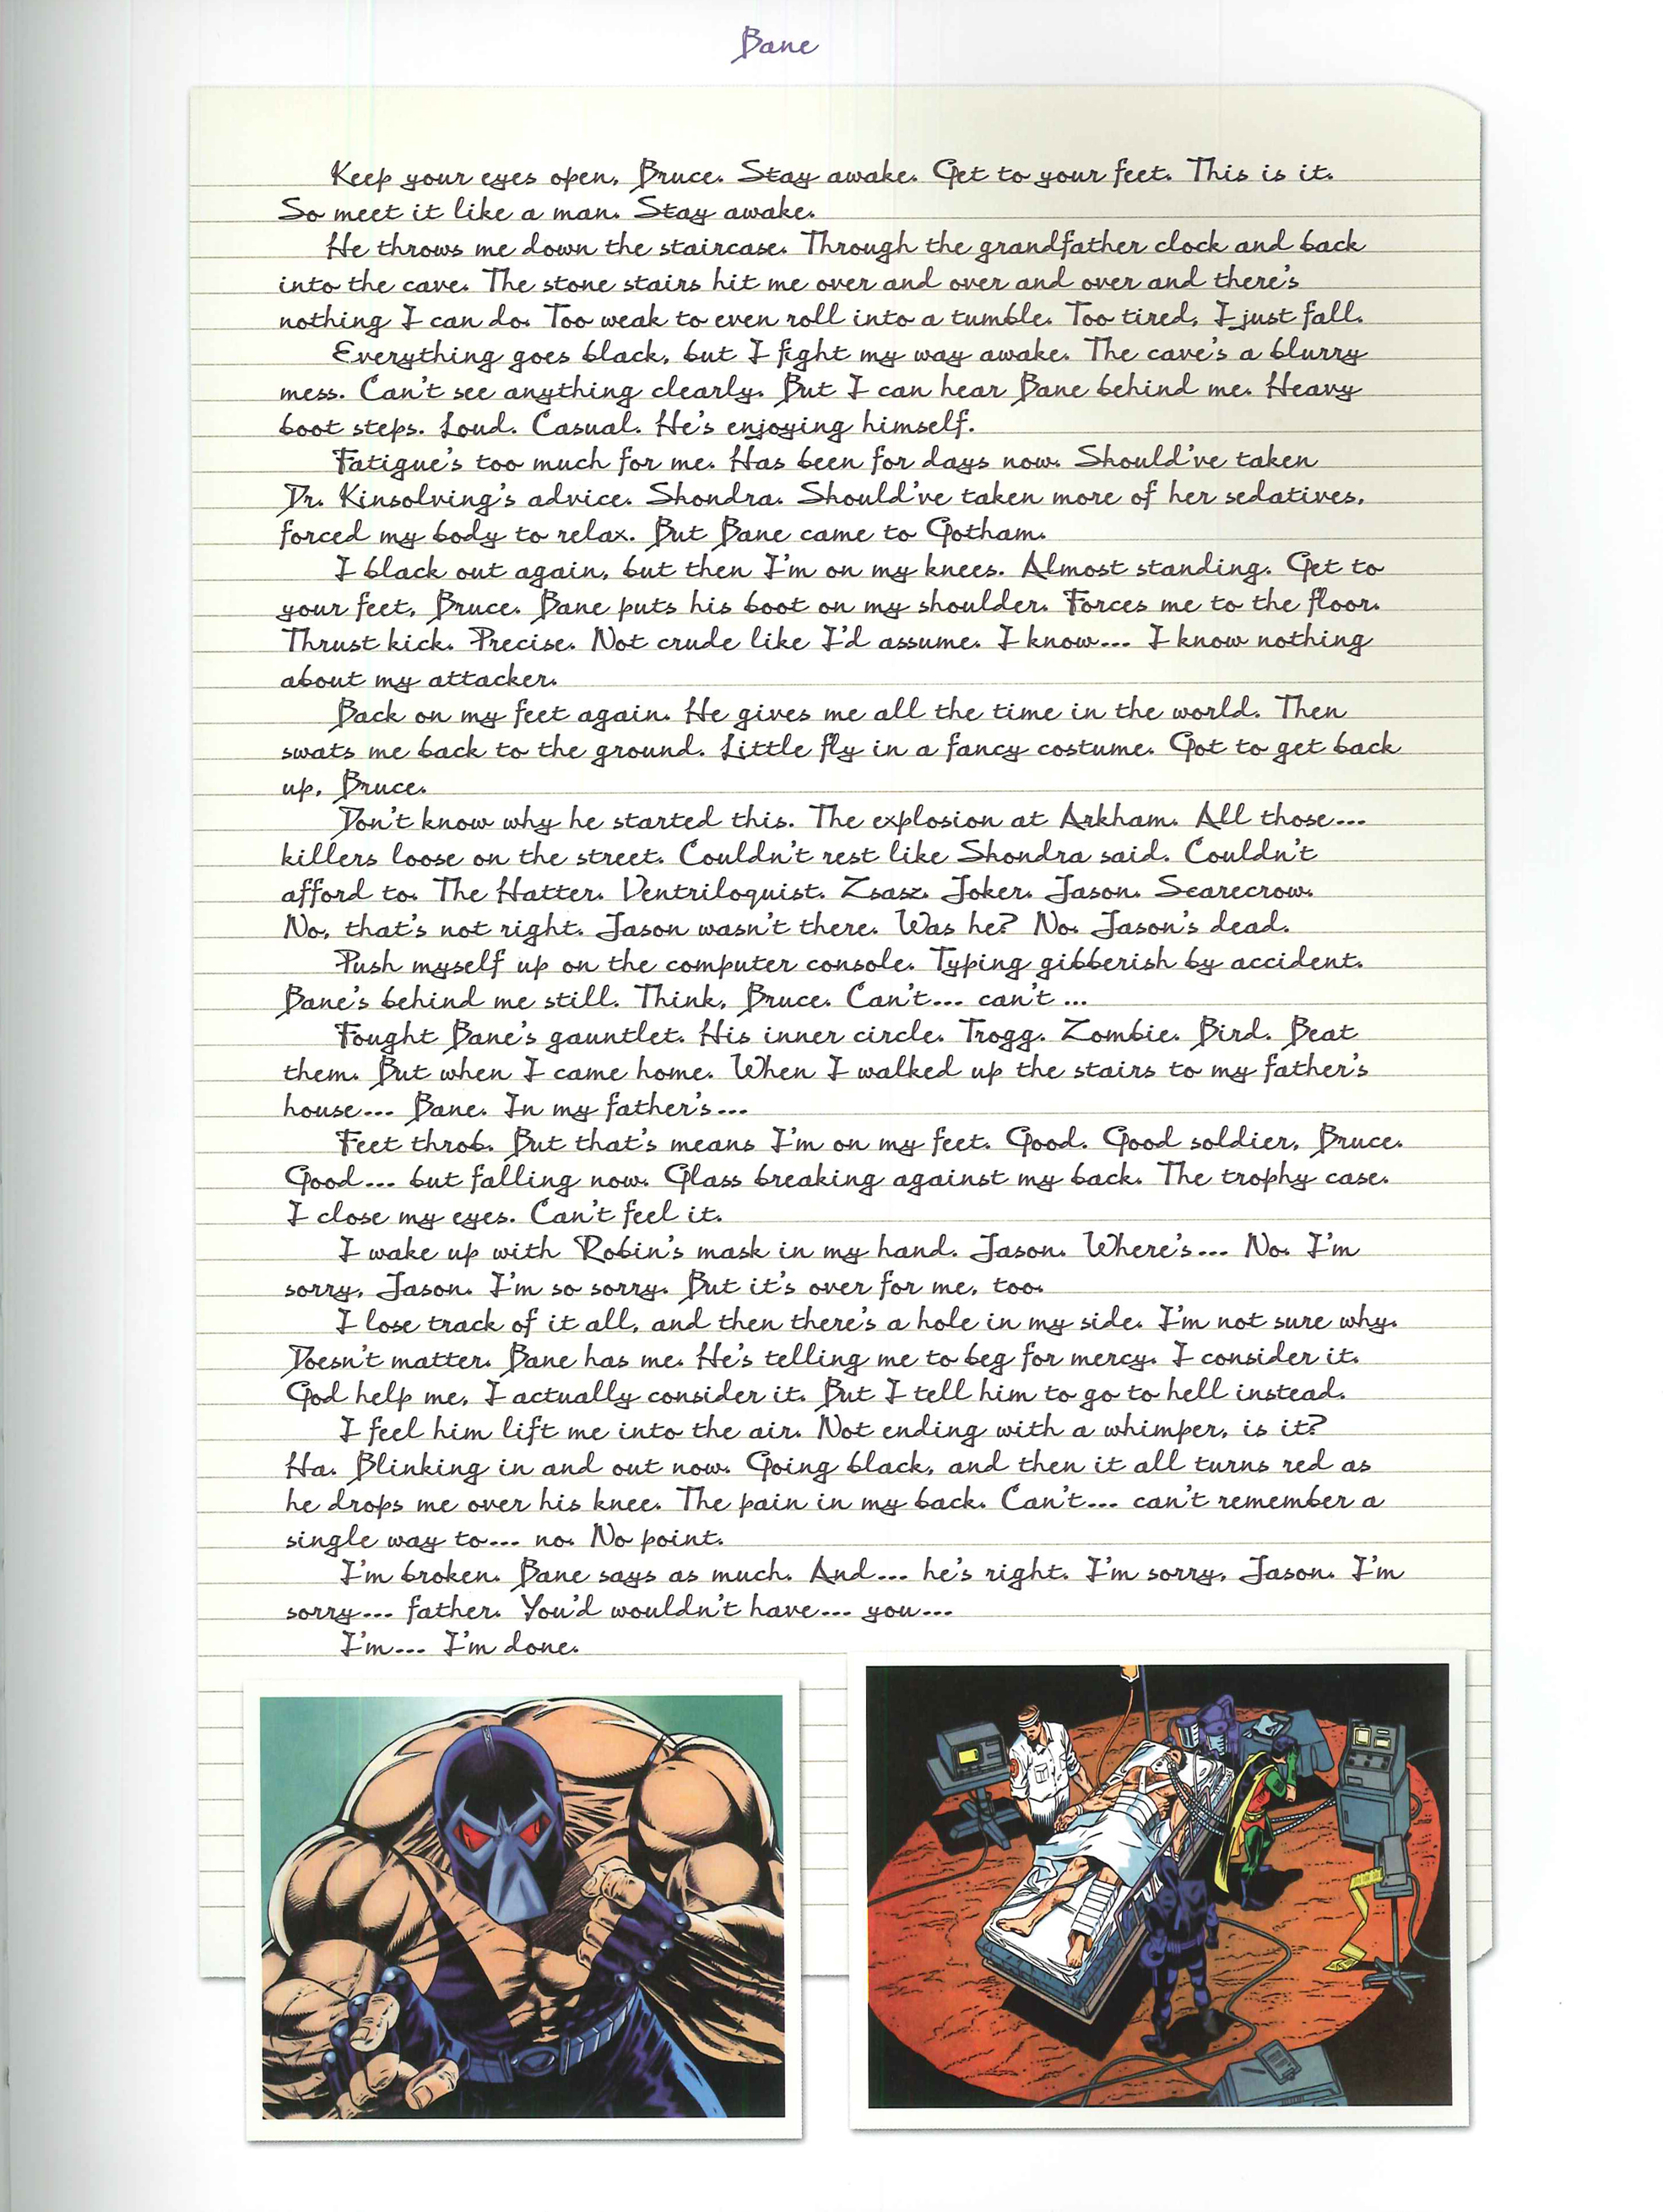 Bane
Keep your eyes open, Bruce. Stay awake. Get to your feet. This is it.
So meet it like a man. Stay awake.
He throws me down the staircase. Through the grandfather clock and back
into the cave. The stone stairs hit me over and over and over and there's
nothing I can do. Too weak to even roll into a tumble. Too tired, I just fall.
Everything goes black, but I fight my way awake. The cave's a blurry
mess. Can't see anything clearly. But I can hear Bane behind me. Heavy
boot steps. Loud. Casual. He's enjoying himself.
Fatigue's too much for me. Has been for days now. Should've taken
Dr. Kinsolving's advice. Shondra. Should've taken more of her sedatives,
forced my body to relax. But Bane came to Gotham.
I black out again, but then I'm on my knees. Almost standing. Get to
your feet, Bruce. Bane puts his boot on my shoulder. Forces me to the floor.
Thrust kick. Precise. Not crude like I'd assume. I know... I know nothing
about my attacker.
Back on my feet again. He gives me all the time in the world. Then
swats me back to the ground. Little fly in a fancy costume. Got to get back
up, Bruce.
Don't know why he started this. The explosion at Arkham. All those...
killers loose on the street. Couldn't rest like Shondra said. Couldn't
afford to. The Hatter. Ventriloquist. Zsasz. Joker. Jason. Scarecrow.
No, that's not right. Jason wasn't there. Was he? No. Jason's dead.
Push myself up on the computer console. Typing gibberish by accident.
Bane's behind me still. Think, Bruce. Can't... can't ...
Fought Bane's gauntlet. His inner circle. Trogg. Zombie. Bird. Beat
them. But when I came home. When I walked up the stairs to my father's
house... Bane. In my father's...
Feet throb. But that's means I'm on my feet. Good. Good soldier, Bruce.
Good... but falling now. Glass breaking against my back. The trophy case.
I close my eyes. Can't feel it.
I wake up with Robin's mask in my hand. Jason. Where's... No. I'm
sorry, Jason. I'm so sorry. But it's over for me, too.
I lose track of it all, and then there's a hole in my side. I'm not sure why.
Doesn't matter. Bane has me. He's telling me to beg for mercy. I consider it.
God help me, I actually consider it. But I tell him to go to hell instead.
I feel him lift me into the air. Not ending with a whimper, is it?
Ha. Blinking in and out now. Going black, and then it all turns red as
he drops me over his knee. The pain in my back. Can't... can't remember a
single way to... no. No point.
I'm broken. Bane says as much. And... he's right. I'm sorry, Jason. I'm
sorry... father. You'd wouldn't have... you...
I'm... I'm done.